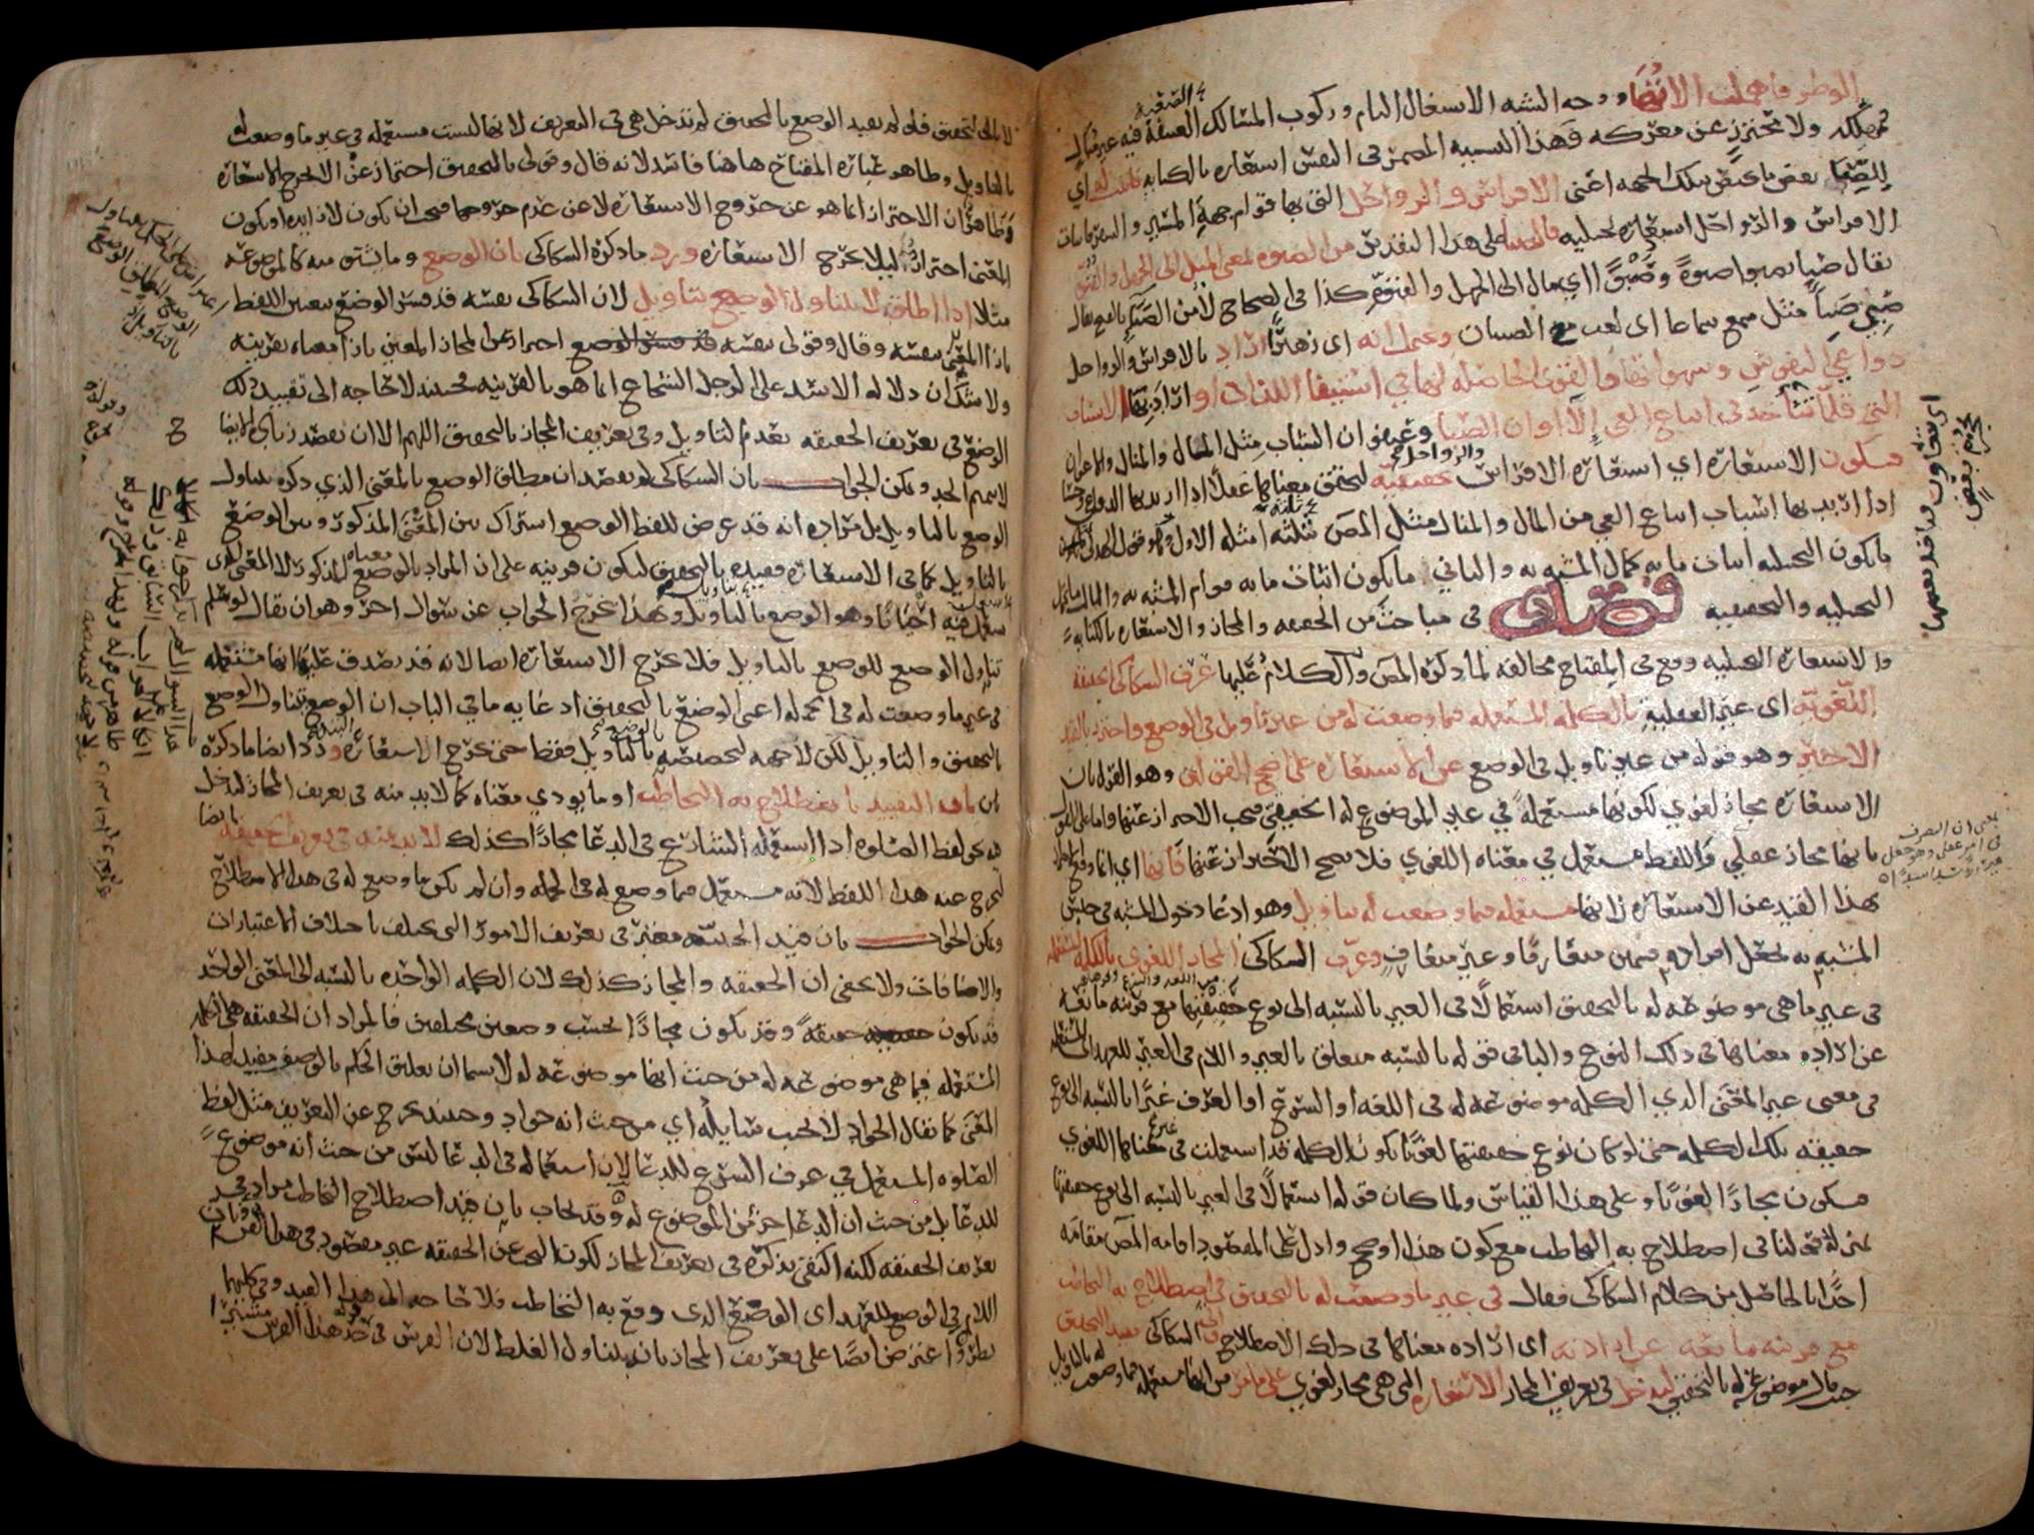 الوطر فاهملت الاتها ووجه الشبه الاشتغال التام وركوب المسالك الصعبة فيه غير مبال
بمهلكه ولا محترز عن معركه فهذا التشبيه المضمر في النفس استعاره بالكنايه فاثبت له اي
للصبا بعض ما يختص بتلك الجهه اعني الافراس والرواحل التي بها قوام جهة المسير والسفر فاثبات
الافراس والرواحل استعاره تخييليه فالصبا على هذا التقدير من الصبوه بمعنى الميل الى الجهل والفتوه
يقال صبا يصبوا صبوة وصبوا اي مال الى الجهل والفتوه كذا في الصحاح لا من الصبا بالفتح يقال
صبي صباء مثل سمع سماعا اي لعب مع الصبيان ويحتمل انه اي زهيرا اراد بالافراس والرواحل
دواعي النفوس وشهواتها والقوى الحاصله لها في استيفا اللذات او اراد بها الاسباب
التي قلما تتاخذ في اتباع الغي الا اوان الصبا وعنفوان الشباب مثل المال والمنال والاعوان
فتكون الاستعاره اي استعاره الافراس والرواحل تحقيقيه لتحقق معناها عقلا اذا اريد بها الدواعي وحسا
اذا اريد بها اسباب اتباع الغي من المال والمنال مثل المص ثلثه امثله الاول
ما يكون التخييليه اثبات ما به كمال المشبه به والثاني ما يكون اثبات ما به قوام المشبه به والثالث ما يحتمل
التخييليه والتحقيقيه فصل في مباحث من الحقيقه والمجاز والاستعاره بالكنايه
والاستعاره التخييليه وقع في المفتاح مخالفه لما ذكره المص والكلام عليها عرف السكاكي الحقيقه
اللغويه اي غير العقليه بالكلمه المستعمله فيما وضعت له من غير تاويل في الوضع واحترز بالقيد
الاخير وهو قوله من غير تاويل في الوضع عن الاستعاره على اصح القولين وهو القول بان
الاستعاره مجاز لغوي لكونها مستعملة في غير الموضوع له الحقيقي فيجب الاحتراز عنها واما على القول
بانها مجاز عقلي واللفظ مستعمل في معناه اللغوي فلا يصح الاحتراز عنها فانها اي انما وقع الاحتراز
بهذا القيد عن الاستعاره لانها مستعمله فيما وضعت له بتاويل وهو ادعا دخول المشبه في جنس
المشبه به بجعل افراده قسمين متعارفا وغير متعارف وعرف السكاكي المجاز اللغوي بالكلمه المستعمله
في غير ما هي موضوعه له بالتحقيق استعمالا في الغير بالنسبه الى نوع حقيقتها مع قرينه مانعه
عن اراده معناها في ذلك النوع والباقي قوله بالنسبه متعلق بالغير واللام في الغير للعهد اي المستعمله
في معنى غير المعنى الذي الكلمه موضوعه له في اللغه او الشرع او العرف غيرا بالنسبه الى نوع
حقيقه تلك الكلمه حتى لو كان نوع حقيقتها لغويا تكون الكلمه قد استعملت في غير معناها اللغوي
فتكون مجازا لغويا وعلى هذا القياس ولما كان قوله استعمالا في الغير بالنسبه الى نوع حقيقتها
بمنزله قولنا في اصطلاح به التخاطب مع كون هذا اوضح وادل على المقصود اقامه المص مقامه
اخذا بالحاصل من كلام السكاكي فقال في غير ما وضعت له بالتحقيق في اصطلاح به التخاطب
مع قرينه مانعه عن ارادته اي اراده معناها في ذلك الاصطلاح واتى السكاكي بقيد التحقيق
حيث قال موضوعة له بالتحقيق ليدخل في تعريف المجاز الاستعاره التي هي مجاز لغوي على ما مر من انها مستعمله فيما وضعت له بالتاويل
لا بالتحقيق فلو لم يقيد الوضع بالتحقيق لم تدخل هي في التعريف لانها ليست مستعمله في غير ما وضعت له
بالتاويل وظاهر عباره المفتاح هاهنا فاسد لانه قال وقولي بالتحقيق احتراز عن الا يخرج الاستعاره
وظاهر ان الاحتراز انما هو عن خروج الاستعاره لا عن عدم خروجها فيجب ان تكون لا زايده او يكون
المعنى احترازا ليلا يخرج الاستعاره ورد ما ذكره السكاكي بان الوضع وما يشتق منه كالموضوعه
مثلا اذا اطلق لا يتناول الوضع بتاويل لان السكاكي نفسه قد فسر الوضع بتعيين اللفظ
بازا المعنى بنفسه وقال وقولي بنفسه احترازا عن المجاز المعين بازا معناه بقرينه
ولا شك ان دلاله الاسد على الرجل الشجاع انما هو بالقرينه فحينئذ لا حاجه الى تقييد ذلك
الوضع في تعريف الحقيقه بعدم التاويل وفي تعريف المجاز بالتحقيق اللهم الا ان يقصد زياده الايضاح
لا تتميم الحد ويمكن الجواب بان السكاكي لم يقصد ان مطلق الوضع بالمعنى الذي ذكره يتناول
الوضع بالتاويل بل مراده انه قد عرض للفظ الوضع اشتراك بين المعنى المذكور وبين الوضع
بالتاويل كما في الاستعاره فقيده بالتحقيق ليكون قرينه على ان المراد بالوضع معناه المذكور لا المعنى الذي
يستعمل فيه احيانا وهو الوضع بالتاويل وبهذا يخرج الجواب عن سوال اخر وهو ان يقال لو سلم
تناول الوضع للوضع بالتاويل فلا يخرج الاستعاره ايضا لانه قد يصدق عليها انها مستعمله
في غير ما وضعت له في الجمله اعني الوضع بالتحقيق اذ غايه ما في الباب ان الوضع يتناول الوضع
بالتحقيق والتاويل لكن لا جهه لتخصيصه بالوضع بالتاويل فقط حتى يخرج الاستعاره ورد ايضا ما ذكره
بان التقييد باصطلاح به التخاطب او ما يودي معناه كما لابد منه في تعريف المجاز ليدخل
فيه نحو لفظ الصلوه اذا استعمله الشارع في الدعا مجازا كذلك لابد منه في تعريف الحقيقه ايضا
ليخرج عنه هذا اللفظ لانه مستعمل فيما وضع له في الجمله وان لم يكن ما وضع له في هذا الاصطلاح
ويمكن الجواب بان قيد الحيثيه معتبر في تعريف الامور التي تختلف باختلاف الاعتبارات
والاضافات ولا يخفى ان الحقيقه والمجاز كذلك لان الكلمه الواحده بالنسبه الى المعنى الواحد
قد تكون حقيقة وقد تكون مجازا بحسب وضعين مختلفين فالمراد ان الحقيقه هي الكلمه
المستعمله فيما هي موضوعه له من حيث انها موضوعه له لا سيما ان تعليق الحكم بالوصف مفيد لهذا
المعنى كما يقال الجواد لا يخيب سايله اي من حيث انه جواد وحينئذ يخرج عن التعريف مثل لفظ
الصلوه المستعمل في عرف الشرع للدعا لان استعماله في الدعا ليس من حيث انه موضوع
للدعا بل من حيث ان الدعا جزء من الموضوع له وقد يجاب بان قيد اصطلاح التخاطب مراد في
تعريف الحقيقه لكنه اكتفى بذكره في تعريف المجاز لكون البحث عن الحقيقه غير مقصود في هذا الفن وبان
اللام في الوضع للعهد اي الوضع الذي وقع به التخاطب فلا حاجه الى هذا القيد وفي كليهما
نظر واعترض ايضا على تعريف المجاز بانه يتناول الغلط لان الفرس في خذ هذا الفرس مشيرا